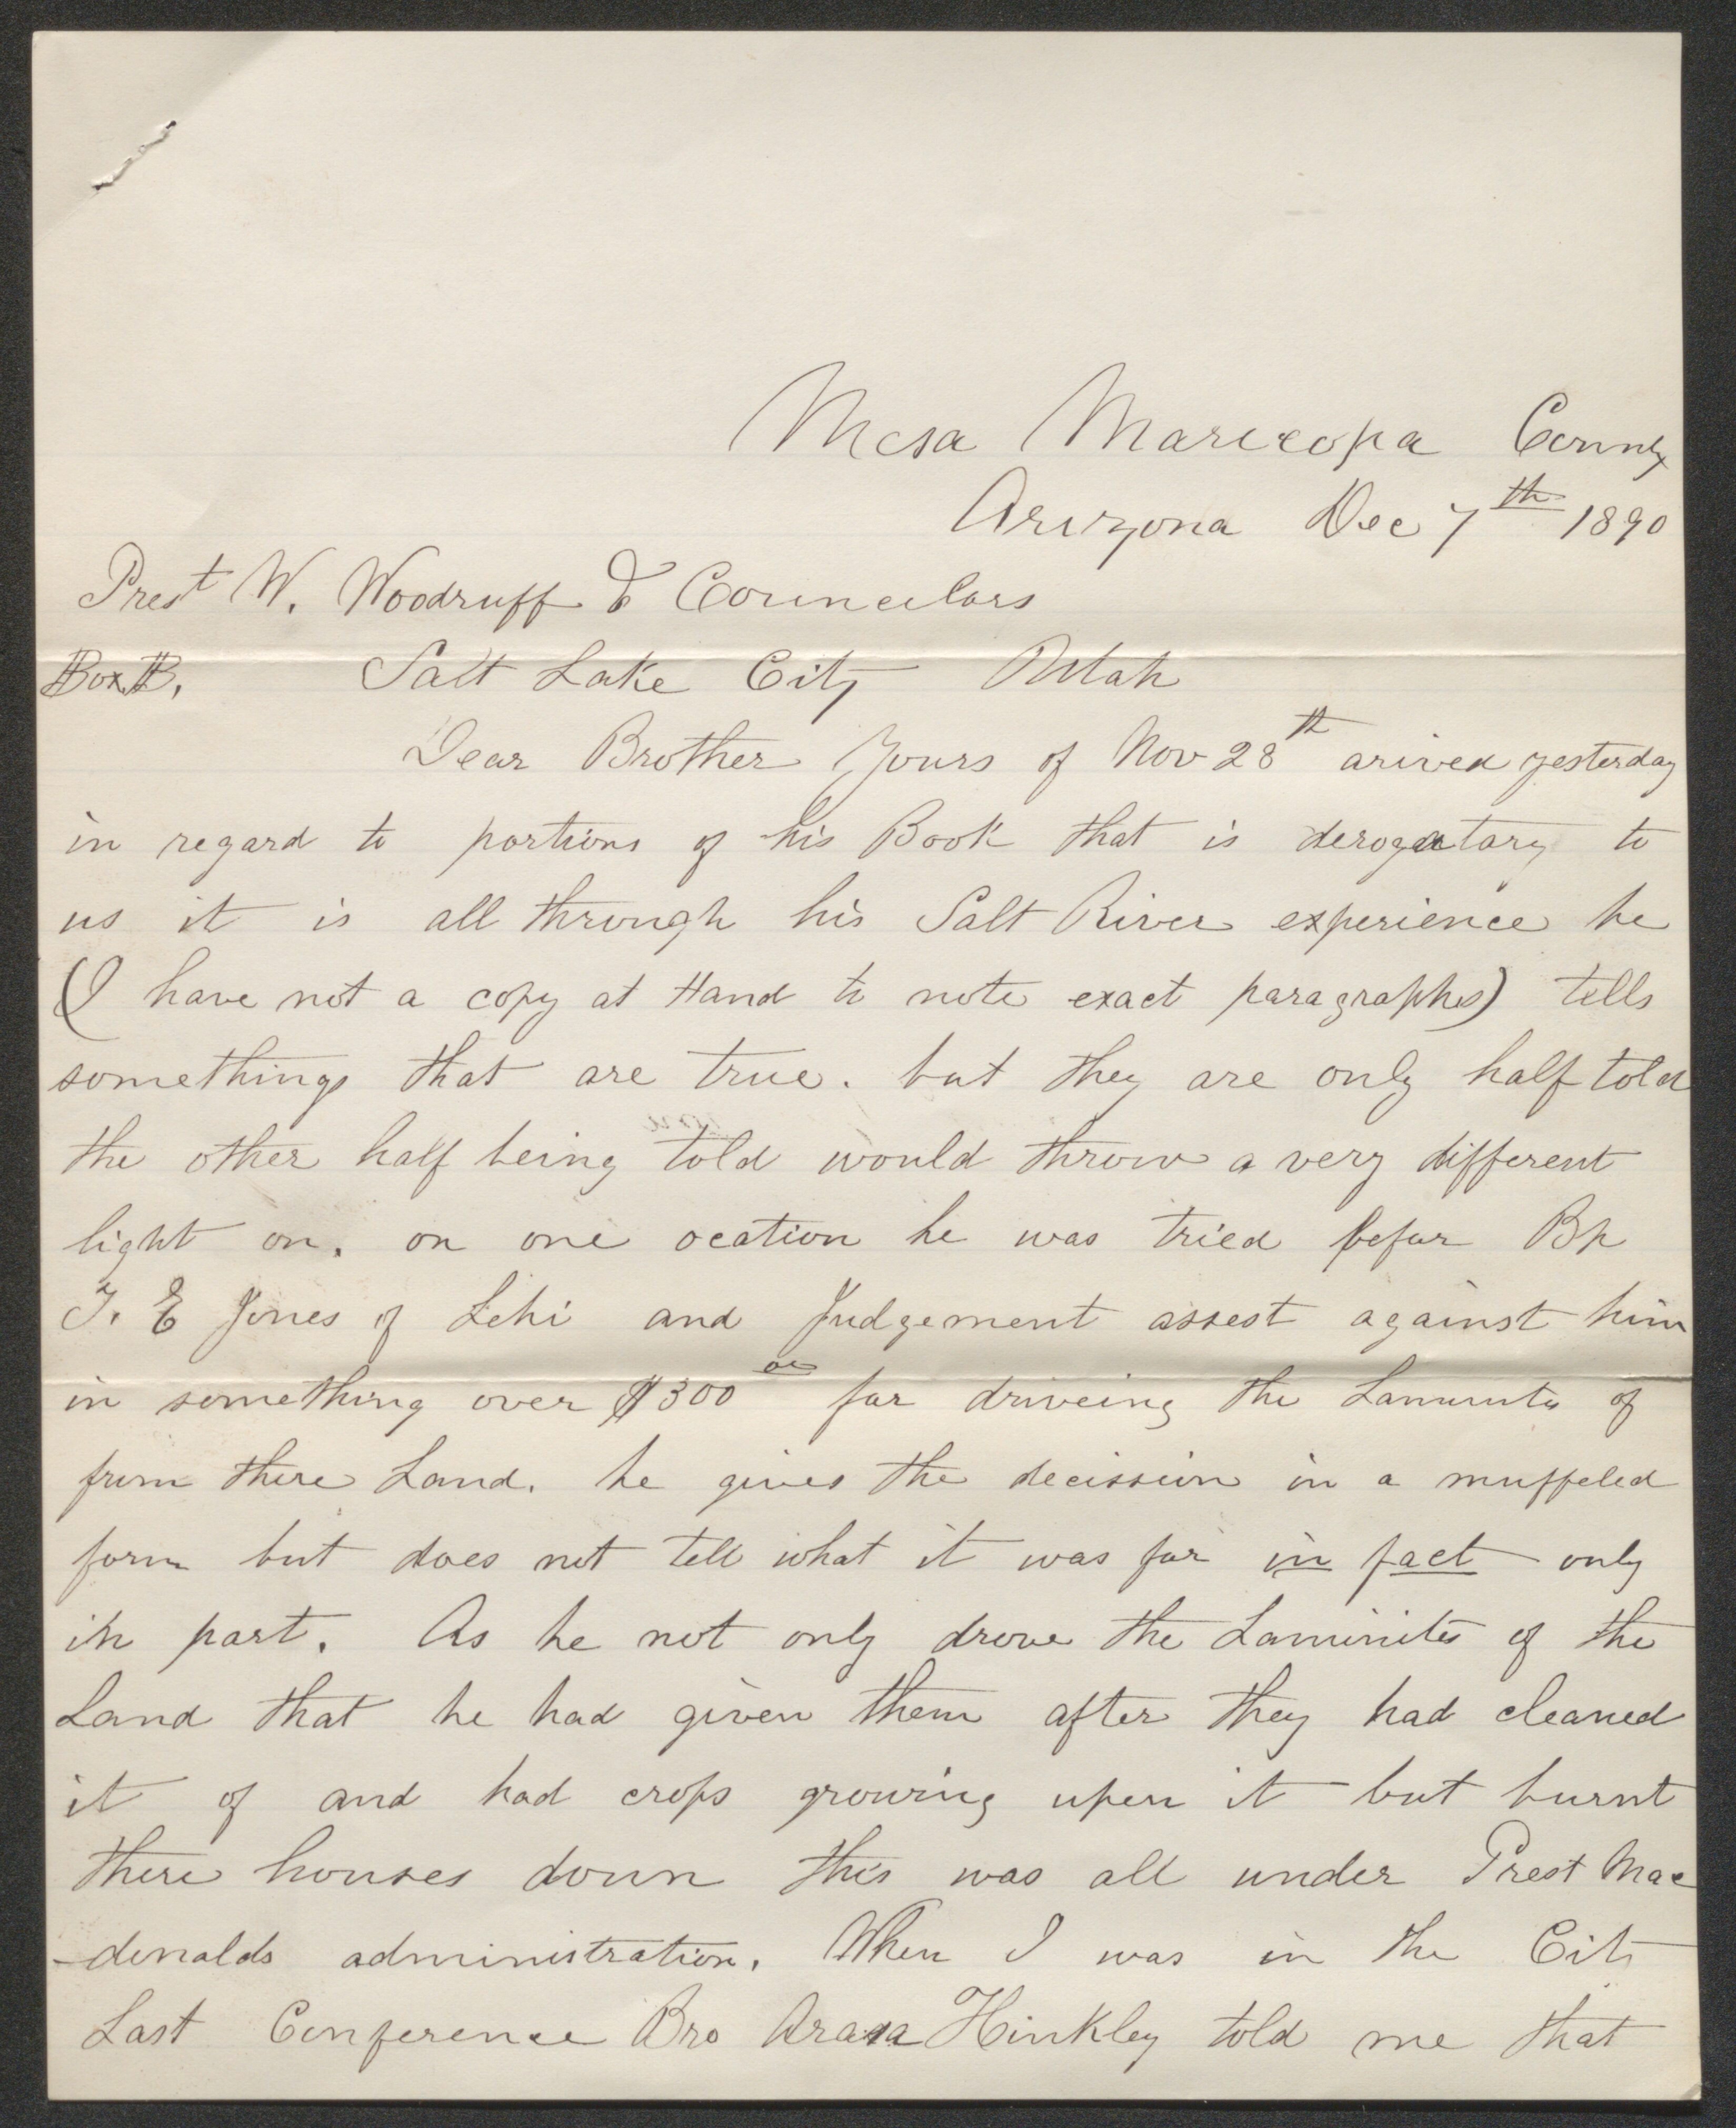 Mesa Maricopa County
Arizona Dec 7th 1890
Prest W. Woodruff & Councelars
Box B. Salt Lake City Utah
Dear Brother Yours of Nov 28th arived yesterday
in regard to portions of his Book that is derogatary to
us it is all through his Salt River experience he
(I have not a copy at Hand to note exact paragraphs) tells
somethings that are true. but they are only half told
the other half being told would throw a very different
light on. on one ocation he was tried befor Bp
T. E Jones of Lehi and Judgement assest against him
in something over $300 00 for driveing the Lamunits of
from there Land. he gives the decission in a muffeled
form but does not tell what it was for in fact only
in part. As he not only drove the Laminites of the
Land that he had given them after they had cleaned
it of and had crops growing upon it but burnt
there houses down this was all under Prest Mac
-donalds administration. When I was in the City
Last Conference Bro Arasa Hinkley told me that